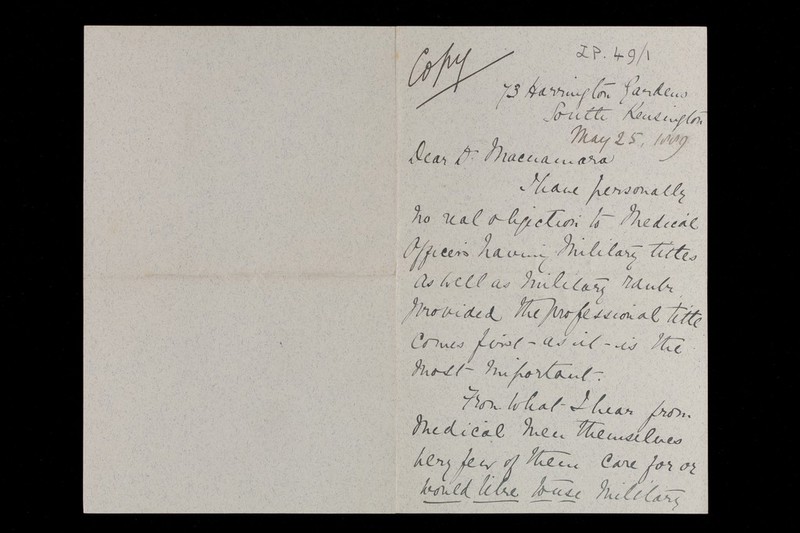 Copy
I.P. 49/1
73 Harrington Gardens
South Kensington
May 25, 1889
Dear Dr Macnamara
I have personally
no real objection to Medical
Officers having Military titles
as well as Military rank
provided the professional title
comes first - as it - is the
most important.
From what I hear from
Medical Men themselves
very few of them care for or
would like to use Military